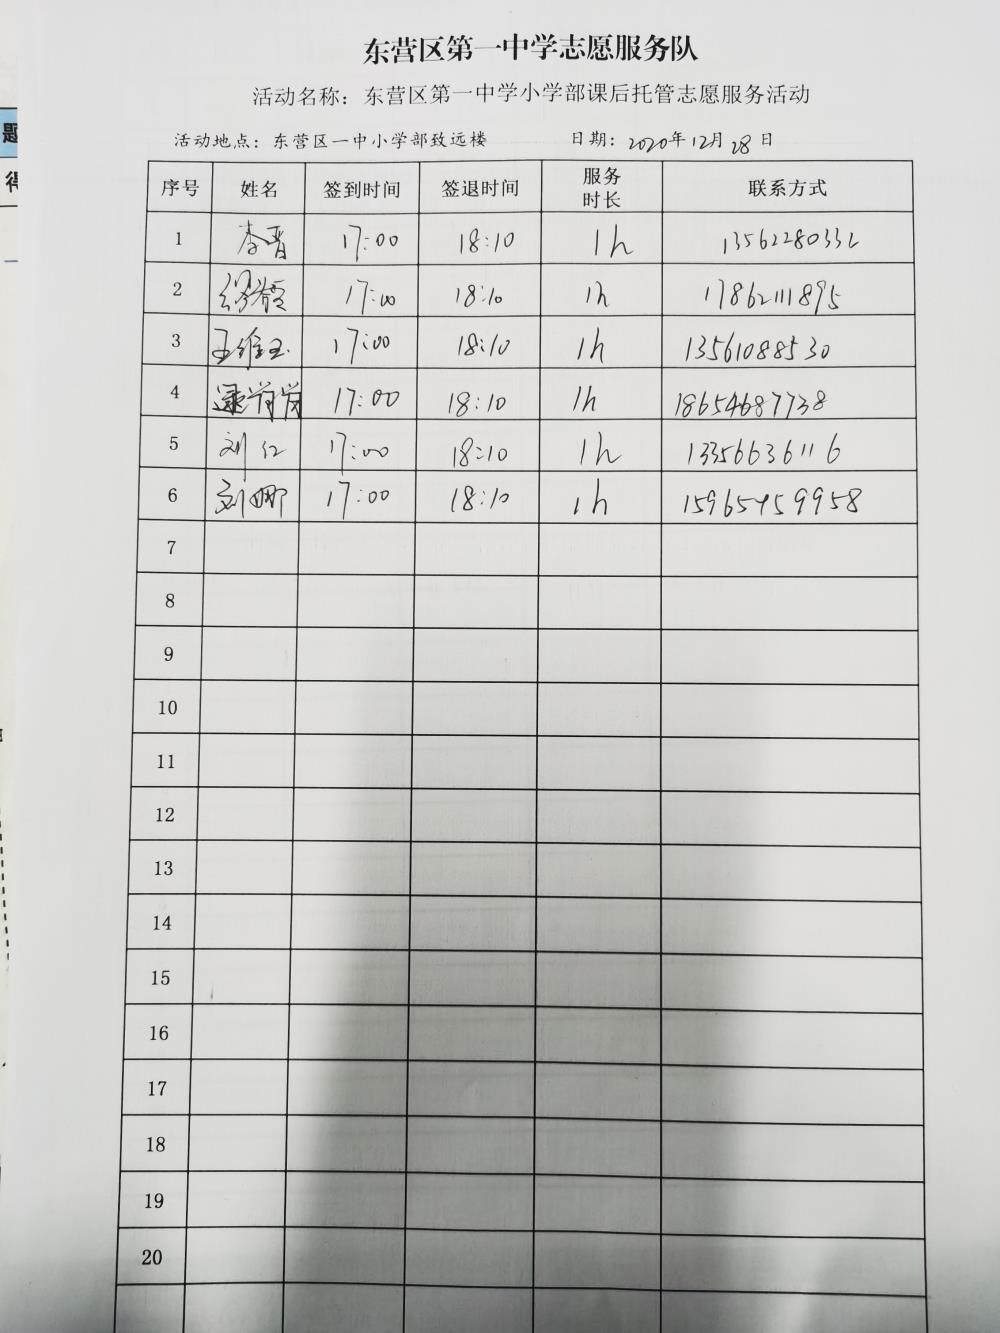 东营区第一中学志愿服务队
活动名称：东营区第一中学小学部课后托管志愿服务活动
活动地点：东营区一中小学部致远楼 日期：2020年12月28日
序号 姓名 签到时间 签退时间 服务时长 联系方式
1 李晋 17:00 18:10 1h 13562280332
2 17:00 18:10 1h 17862111895
3 王维玉 17:00 18:10 1h 13561088530
4 17:00 18:10 1h 18654687738
5 刘仁 17:00 18:10 1h 13356636116
6 刘娜 17:00 18:10 1h 15965459958
7
8
9
10
11
12
13
14
15
16
17
18
19
20
题
得